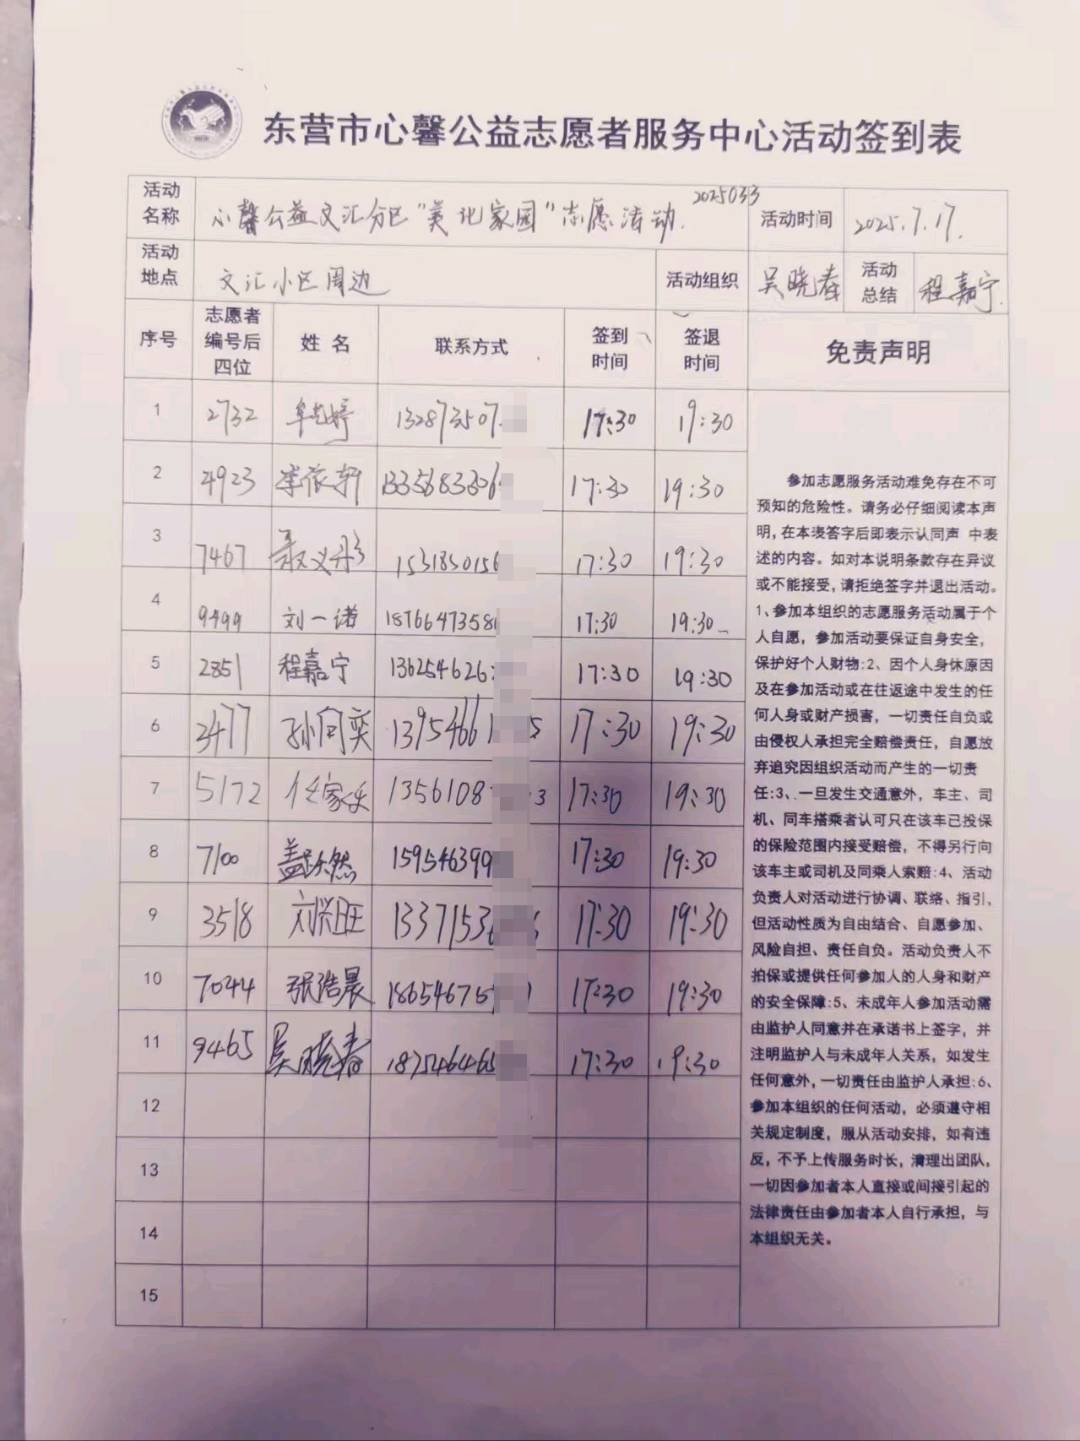 东营市心馨公益志愿者服务中心活动签到表
活动名称 心馨公益文汇分区"美化家园"志愿活动. 2025033 活动时间 2025.7.17.
活动地点 文汇小区周边 活动组织 吴晓春 活动总结 程嘉宁
序号 志愿者编号后四位 姓名 联系方式 签到时间 签退时间 免责声明
1 2732 132873507 17:30 19:30
2 4923 李依轩 17:30 19:30
3 7467 1531850156 17:30 19:30
4 9499 刘一诺 1876647358 17:30 19:30
5 2851 程嘉宁 136254626 17:30 19:30
6 3477 孙向奕 1395466 17:30 19:30
7 5172 任家乐 1356108 3 17:30 19:30
8 7100 盖乐然 159546399 17:30 19:30
9 3518 刘兴旺 1337153 17:30 19:30
10 7044 张浩晨 18654675 17:30 19:30
11 9465 吴晓春 187546465 17:30 19:30
12
13
14
15
参加志愿服务活动难免存在不可
预知的危险性。请务必仔细阅读本声
明,在本表签字后即表示认同声 中表
述的内容。如对本说明条款存在异议
或不能接受,请拒绝签字并退出活动。
1、参加本组织的志愿服务活动属于个
人自愿，参加活动要保证自身安全，
保护好个人财物:2、因个人身体原因
及在参加活动或在往返途中发生的任
何人身或财产损害，一切责任自负或
由侵权人承担完全赔偿责任，自愿放
弃追究因组织活动而产生的一切责
任:3、一旦发生交通意外，车主、司
机、同车搭乘者认可只在该车已投保
的保险范围内接受赔偿，不得另行向
该车主或司机及同乘人索赔:4、活动
负责人对活动进行协调、联络、指引，
但活动性质为自由结合、自愿参加、
风险自担、责任自负。活动负责人不
担保或提供任何参加人的人身和财产
的安全保障:5、未成年人参加活动需
由监护人同意并在承诺书上签字，并
注明监护人与未成年人关系，如发生
任何意外,一切责任由监护人承担:6、
参加本组织的任何活动，必须遵守相
关规定制度，服从活动安排，如有违
反，不予上传服务时长，清理出团队，
一切因参加者本人直接或间接引起的
法律责任由参加者本人自行承担，与
本组织无关。